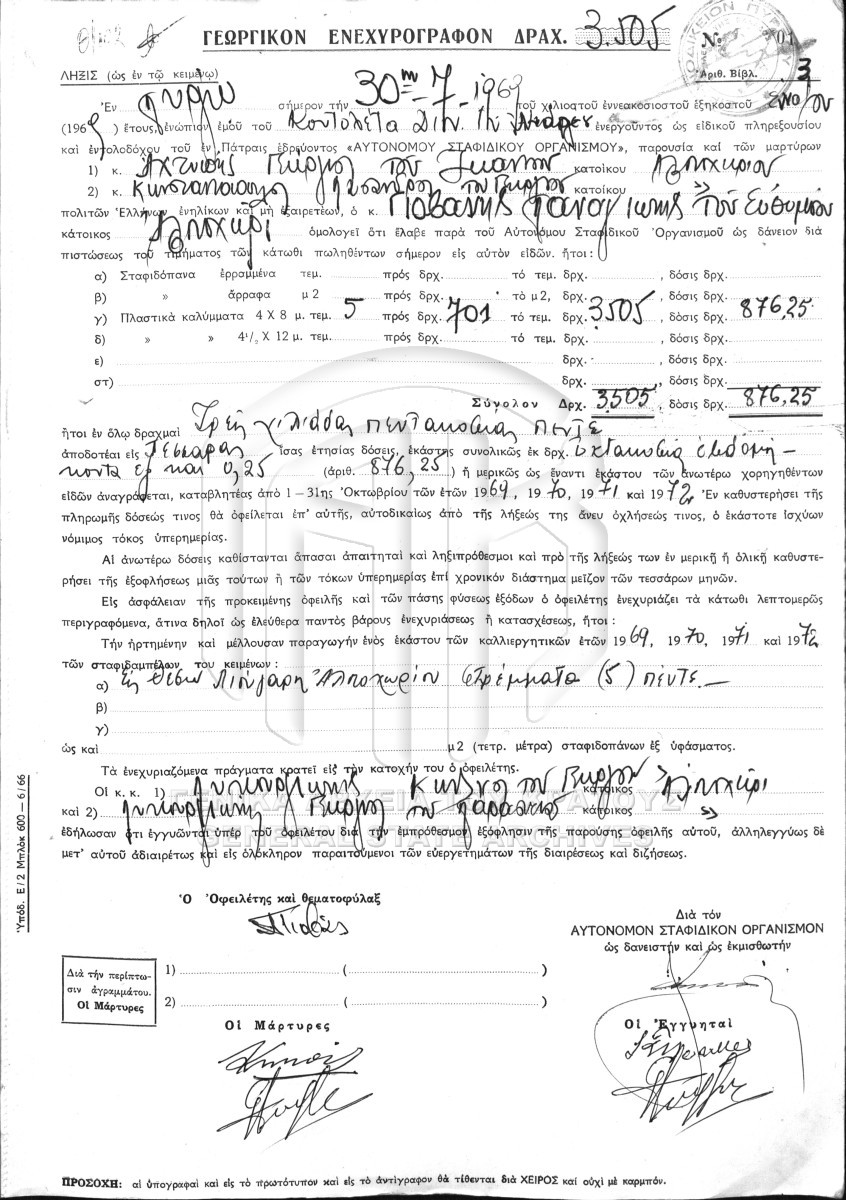 ΓΕΩΡΓΙΚΟΝ ΕΝΕΧΥΡΟΓΡΑΦΟΝ ΔΡΑΧ. 3.505
Νο 701
ΛΗΞΙΣ (ὡς ἐν τῷ κειμένῳ) Ἀριθ. Βίβλ. 3
Ἐν Πύργῳ σήμερον τὴν 30ην 7 1969 τοῦ χιλιοστοῦ ἐννεακοσιοστοῦ ἑξηκοστοῦ
(1969) ἔτους, ἐνώπιον ἐμοῦ τοῦ ἐνεργοῦντος ὡς εἰδικοῦ πληρεξουσίου
καὶ ἐντολοδόχου τοῦ ἐν Πάτραις ἑδρεύοντος «ΑΥΤΟΝΟΜΟΥ ΣΤΑΦΙΔΙΚΟΥ ΟΡΓΑΝΙΣΜΟΥ», παρουσίᾳ καὶ τῶν μαρτύρων
1) κ. Γεώργιος τοῦ Ἰωάννου κατοίκου Αλποχωρίου
2) κ. τοῦ Γεωργίου κατοίκου »
πολιτῶν Ἑλλήνων ἐνηλίκων καὶ μὴ ἐξαιρετέων, ὁ κ. Παναγιώτης τοῦ Εὐθυμίου
κάτοικος Αλποχώρι ὁμολογεῖ ὅτι ἔλαβε παρὰ τοῦ Αὐτονόμου Σταφιδικοῦ Ὀργανισμοῦ ὡς δάνειον διὰ
πιστώσεως τοῦ τιμήματος τῶν κάτωθι πωληθέντων σήμερον εἰς αὐτὸν εἰδῶν. ἤτοι:
α) Σταφιδόπανα ἐρραμμένα τεμ. πρὸς δρχ. τό τεμ. δρχ. , δόσις δρχ.
β) » ἄρραφα μ2 πρὸς δρχ. τὸ μ2, δρχ. , δόσις δρχ.
γ) Πλαστικὰ καλύμματα 4 Χ 8 μ. τεμ. 5 πρὸς δρχ. 701 τὸ τεμ. δρχ. 3505 , δόσις δρχ. 876,25
δ) » » 4½ Χ 12 μ. τεμ. πρὸς δρχ. τό τεμ. δρχ. , δόσις δρχ.
ε) δρχ. , δόσις δρχ.
στ) δρχ. , δόσις δρχ.
Σύνολον Δρχ. 3.505 , δόσις δρχ. 876,25
ἤτοι ἐν ὅλῳ δραχμαὶ Τρεῖς χιλιάδας πεντακοσίας πέντε
ἀποδοτέαι εἰς Τέσσαρας ἴσας ἐτησίας δόσεις, ἑκάστης συνολικῶς ἐκ δρχ. ὀκτακοσια ἑβδομή-
κοντα ἕξ και 0,25 (ἀριθ. 876,25) ἢ μερικῶς ὡς ἔναντι ἑκάστου τῶν ἀνωτέρω χορηγηθέντων
εἰδῶν ἀναγράφεται, καταβλητέας ἀπὸ 1—31ης Ὀκτωβρίου τῶν ἐτῶν 1969, 1970, 1971 καὶ 1972 Ἐν καθυστερήσει τῆς
πληρωμῆς δόσεώς τινος θὰ ὀφείλεται ἐπ' αὐτῆς, αὐτοδικαίως ἀπὸ τῆς λήξεώς της ἄνευ ὀχλήσεώς τινος, ὁ ἑκάστοτε ἰσχύων
νόμιμος τόκος ὑπερημερίας.
Αἱ ἀνωτέρω δόσεις καθίστανται ἅπασαι ἀπαιτηταὶ καὶ ληξιπρόθεσμοι καὶ πρὸ τῆς λήξεώς των ἐν μερικῇ ἢ ὁλικῇ καθυστε-
ρήσει τῆς ἐξοφλήσεως μιᾶς τούτων ἢ τῶν τόκων ὑπερημερίας ἐπὶ χρονικὸν διάστημα μεῖζον τῶν τεσσάρων μηνῶν.
Εἰς ἀσφάλειαν τῆς προκειμένης ὀφειλῆς καὶ τῶν πάσης φύσεως ἐξόδων ὁ ὀφειλέτης ἐνεχυριάζει τὰ κάτωθι λεπτομερῶς
περιγραφόμενα, ἅτινα δηλοῖ ὡς ἐλεύθερα παντὸς βάρους ἐνεχυριάσεως ἢ κατασχέσεως, ἤτοι:
Τὴν ἠρτημένην καὶ μέλλουσαν παραγωγὴν ἑνὸς ἑκάστου τῶν καλλιεργητικῶν ἐτῶν 1969, 1970, 1971 καὶ 1972
τῶν σταφιδαμπέλων του κειμένων:
α) Εἰς θέσιν Αλποχωρίου στρέμματα (5) πέντε.—
β)
γ)
ὡς καὶ μ2 (τετρ. μέτρα) σταφιδοπάνων ἐξ ὑφάσματος.
Τὰ ἐνεχυριαζόμενα πράγματα κρατεῖ εἰς τὴν κατοχήν του ὁ ὀφειλέτης.
Οἱ κ. κ. 1) τοῦ Γεωργίου κάτοικος Αλποχώρι
καὶ 2) Γεώργιος τοῦ κάτοικος »
ΓΕΝΙΚΑ ΑΡΧΕΙΑ ΤΟΥ ΚΡΑΤΟΥΣ
GENERAL STATE ARCHIVES
ἐδήλωσαν ὅτι ἐγγυῶνται ὑπὲρ τοῦ ὀφειλέτου διὰ τὴν ἐμπρόθεσμον ἐξόφλησιν τῆς παρούσης ὀφειλῆς αὐτοῦ, ἀλληλεγγύως δὲ
μετ' αὐτοῦ ἀδιαιρέτως καὶ εἰς ὁλόκληρον παραιτούμενοι τῶν εὐεργετημάτων τῆς διαιρέσεως καὶ διζήσεως.
Ὑπόδ. Ε/2 Μπλὸκ 600 — 6/66
Ὁ Ὀφειλέτης καὶ θεματοφύλαξ
Διὰ τόν
ΑΥΤΟΝΟΜΟΝ ΣΤΑΦΙΔΙΚΟΝ ΟΡΓΑΝΙΣΜΟΝ
ὡς δανειστὴν καὶ ὡς ἐκμισθωτήν
Διὰ τὴν περίπτω-
σιν ἀγραμμάτου.
Οἱ Μάρτυρες
1) ( )
2) ( )
Οἱ Μάρτυρες
Οἱ Ἐγγυηταὶ
ΠΡΟΣΟΧΗ: αἱ ὑπογραφαὶ καὶ εἰς τὸ πρωτότυπον καὶ εἰς τὸ ἀντίγραφον θὰ τίθενται διὰ ΧΕΙΡΟΣ καὶ οὐχὶ μὲ καρμπόν.